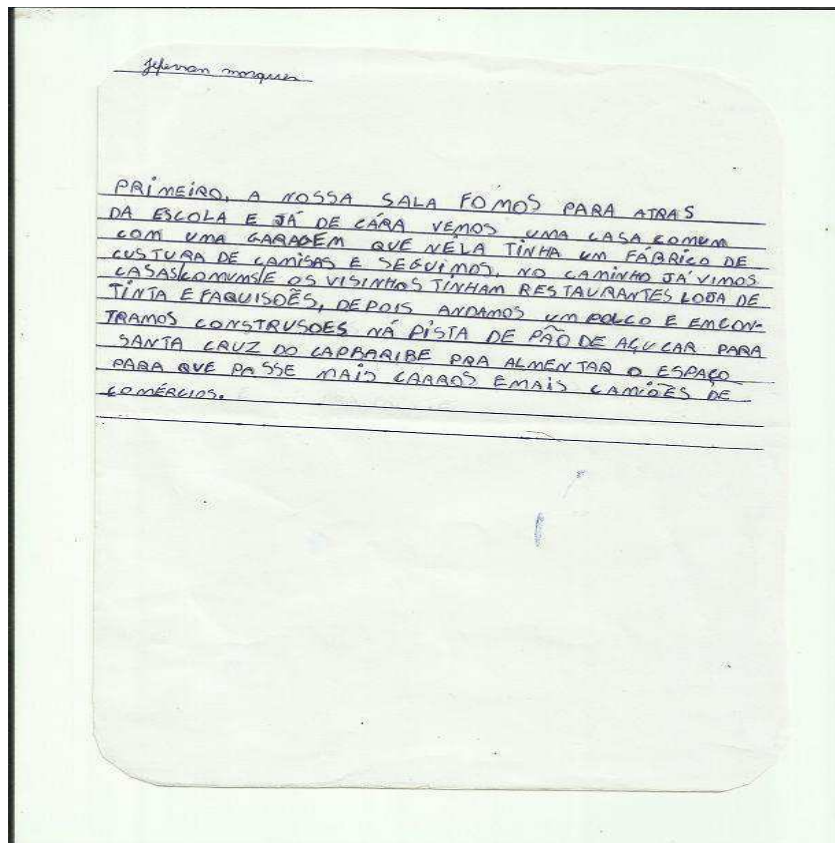 Jeferson marques
PRIMEIRO, A NOSSA SALA FOMOS PARA ATRAS
DA ESCOLA E JÁ DE CÁRA VEMOS UMA CASA COMUM
COM UMA GARAGÉM QUE NÉLA TINHA UM FÁBRICO DE
CUSTURA DE CAMISAS E SEGUIMOS, NO CAMINHO JÁ VIMOS
CASAS/COMUMS/E OS VISINHOS TINHAM RESTAURANTES LOJA DE
TINTA E FAQUISÕES, DEPOIS ANDAMOS UM POLCO E EMCON-
TRAMOS CONSTRUSOES NÁ PISTA DE PÃO DE AÇUCAR PARA
SANTA CRUZ DO CAPBARIBE PRA ALMENTAR O ESPAÇO
PARA QUE PASSE MAIS CARROS EMAIS CAMIÕES DE
COMÉRCIOS.